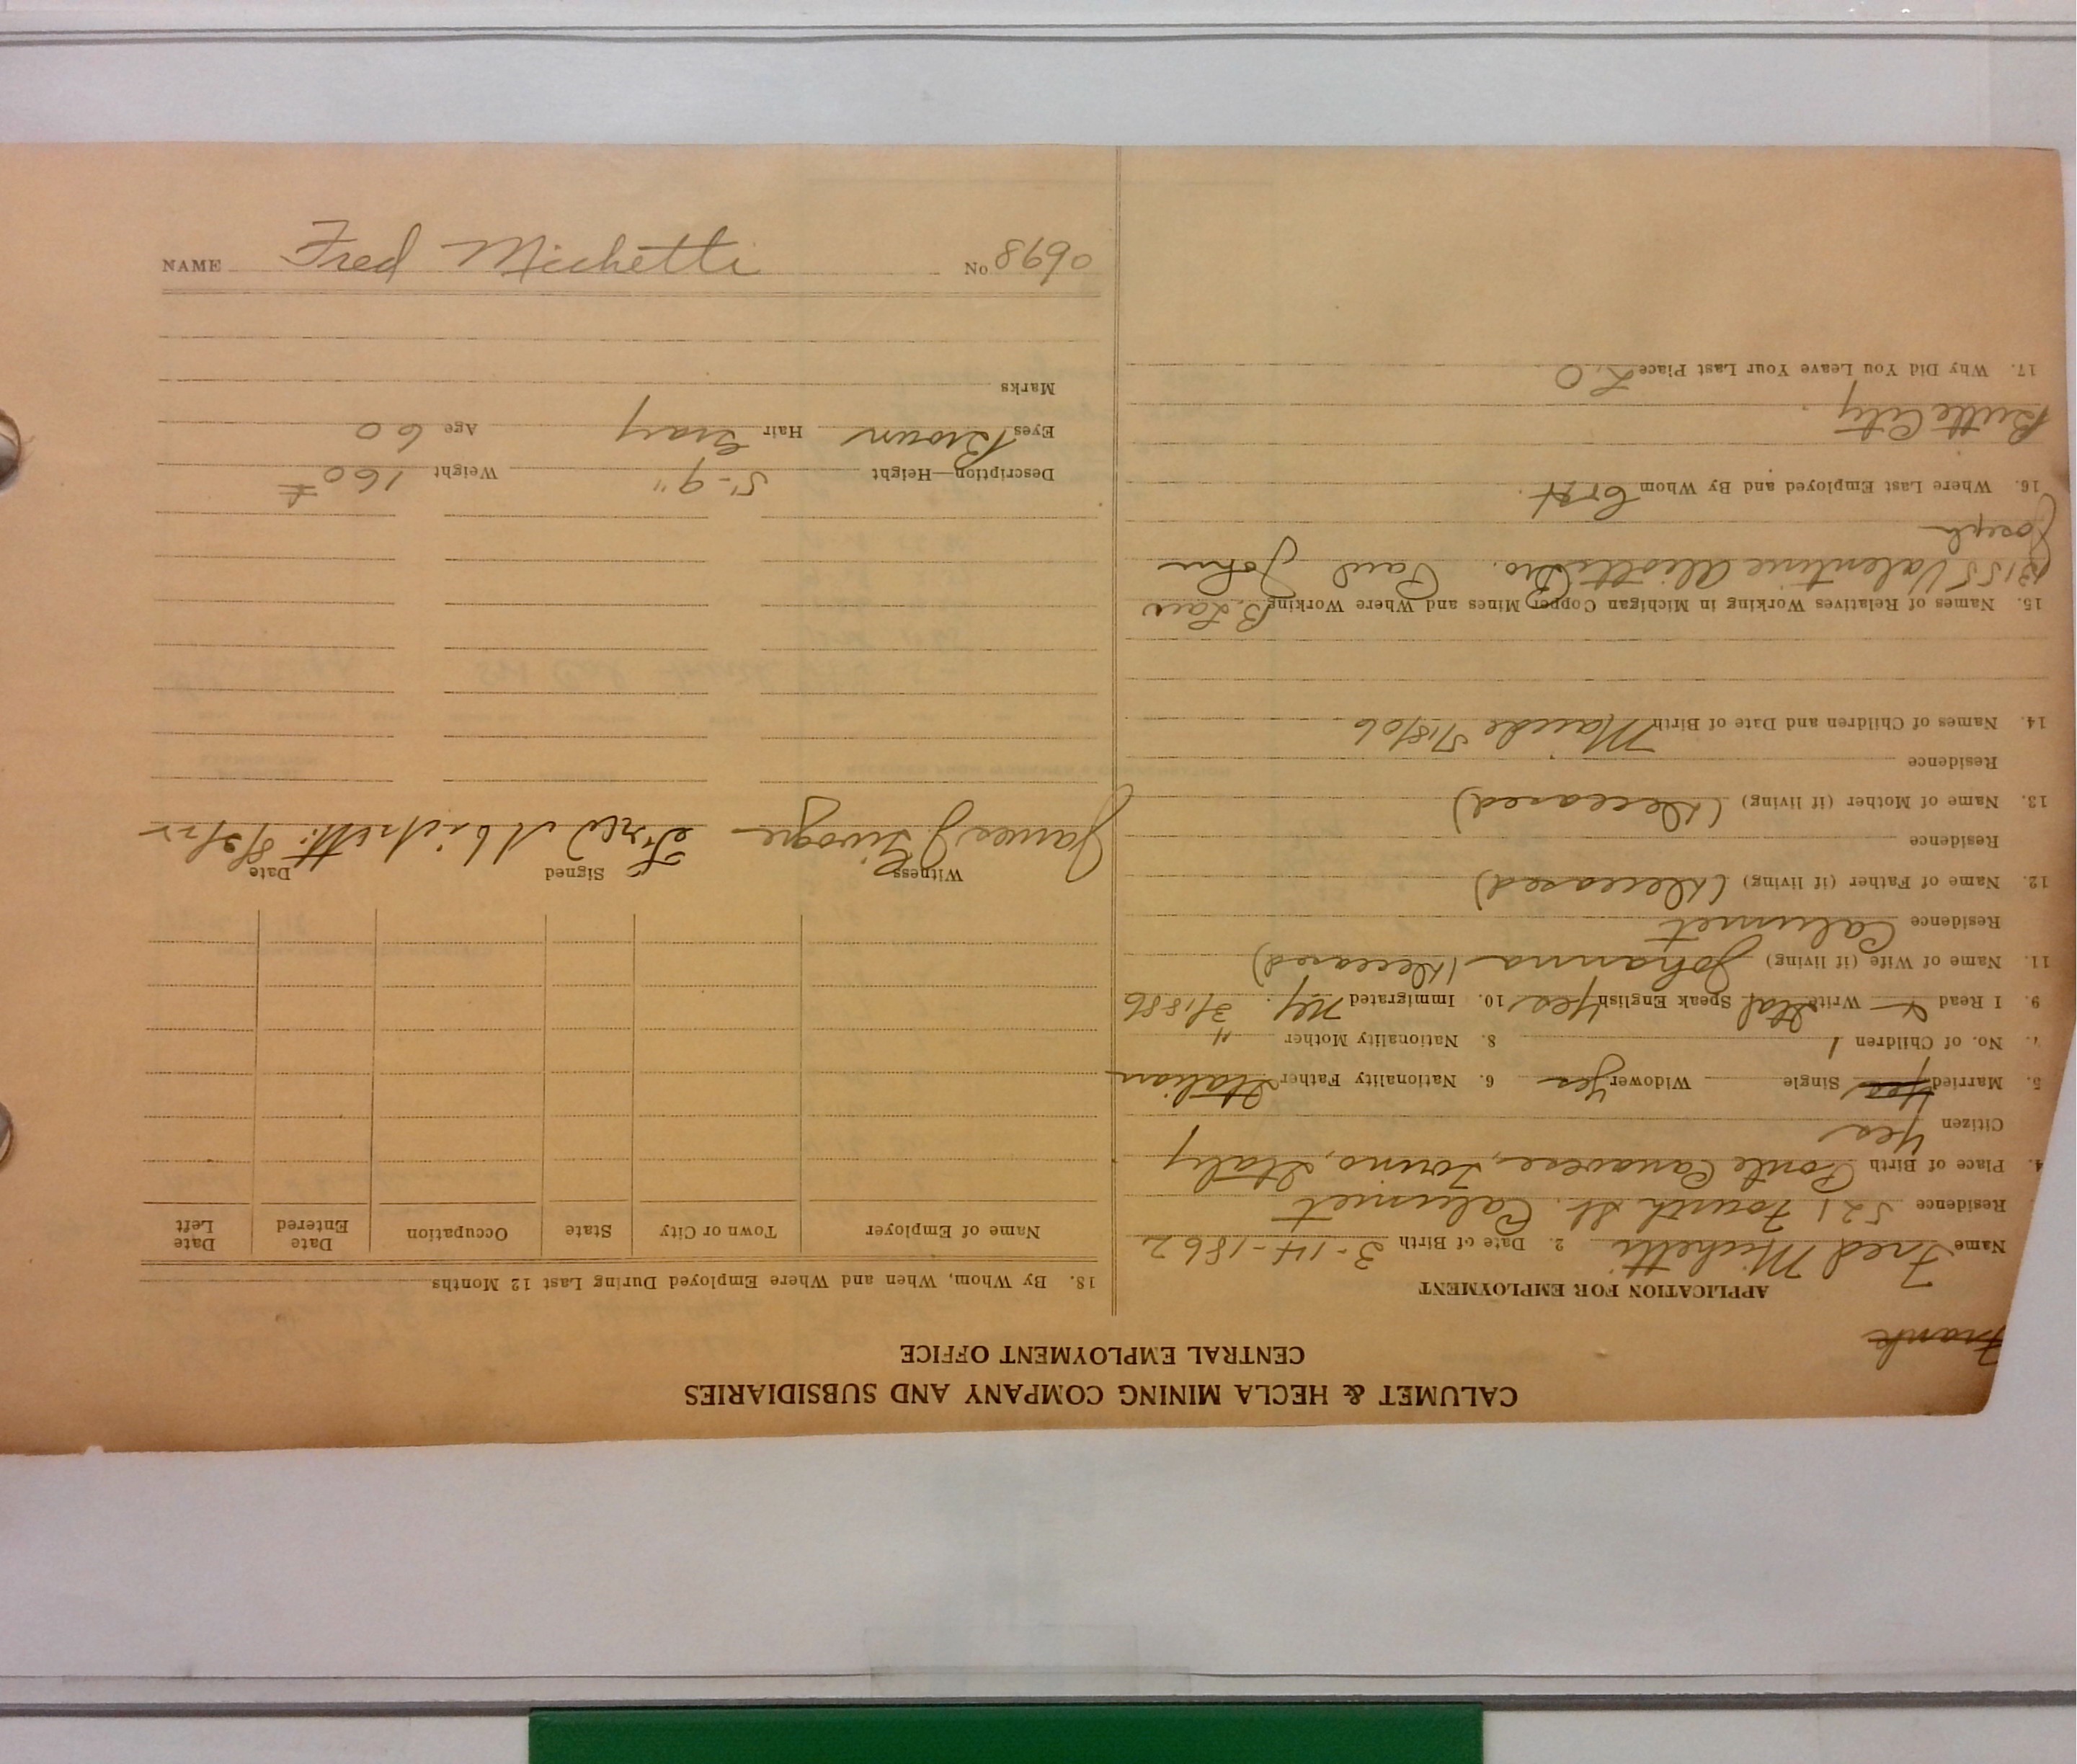 CALUMET & HECLA MINING COMPANY AND SUBSIDIARIES
CENTRAL EMPLOYMENT OFFICE
Frank
APPLICATION FOR EMPLOYMENT
Name Fred Michetti 2. Date of Birth 3-14-1862
Residence 521 Fourth St. Calumet
4. Place of Birth Ponte Canavese, Torino, Italy
Citizen Yes
5. Married Yes Single Widower Yes 6. Nationality Father Italian
7. No. of Children 1 8. Nationality Mother "
9. I Read & Write Ital Speak English Yes 10. Immigrated NY. 3/1886
11. Name of Wife (if living) Johanna (Deceased)
Residence Calumet
12. Name of Father (if living) (Deceased)
Residence
13. Name of Mother (if living) (Deceased)
Residence
14. Names of Children and Date of Birth Maude 5/18/06
15. Names of Relatives Working in Michigan Copper Mines and Where Working B. Law
Valentine Aliotti Bro. Paul John
Joseph
16. Where Last Employed and By Whom
Butte City
17. Why Did You Leave Your Last Place L.O
18. By Whom, When and Where Employed During Last 12 Months
Name of Employer Town or City State Occupation Date Entered Date Left
Witness Signed Date
James J Fred Michetti
Description—Height 5'-9" Weight 160#
Eyes Brown Hair Gray Age 60
Marks
NAME Fred Michetti No 8690